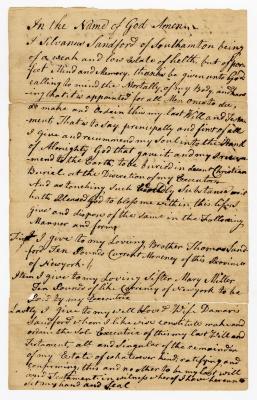 In the Name of God Amen
I Silvanus Sandford of Southamton being
of a weak and low Estate of helth, but of per
fect Mind and Memory, thanks be given unto God
calling to mind the Mortality of my Body, and know
ing that it is appointed for all Men once to die,
do make and ordain this my Last Will and Testa
ment That is to Say principally and first of all
I give and recommend my Soul into the Hand
of Almighty God that gave it and my Body I recom
mend to the Earth, to be buried in decent Christian
Burial, at the Discretion of my Executors
And as touching Such Worldly Substance as it
hath pleased God to bless me with, in this Life I
give and dispose of the same in the following
Manner and form
First I give to my Loving Brother Thomas Sand
ford Ten Pounds Current Money of this Province
of Newyork
Item I give to my Loving Sister Mary Miller
Ten Pounds of like Currency of Newyork to be
paid by my Executrix
Lastly I give to my well Loved Wife Damaris
Sandford whom I likewise constitute make and
ordain the sole Executrix of this my Last will and
Testament, all and Singular of the remainder
of my Estate of whatever kind, ratifying and
confirming this and no other to be my last will
and Testament in witness whereof I have hereunto
Set my hand and Seal